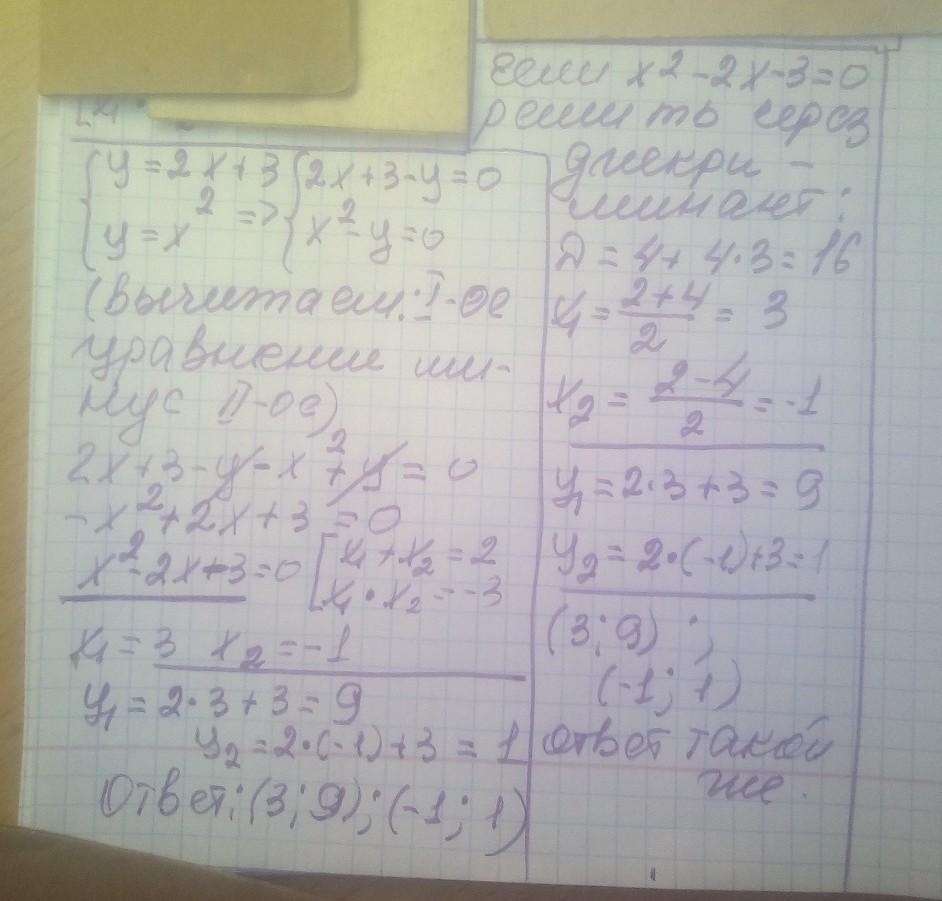 { y = 2x + 3 { 2x + 3 - y = 0
{ y = x² => { x² - y = 0
(Вычитаем: I-ое
уравнение ми-
нус II-ое)
2x + 3 - y - x² + y = 0
-x² + 2x + 3 = 0
x² - 2x - 3 = 0 [ x₁ + x₂ = 2
[ x₁ · x₂ = -3
x₁ = 3 x₂ = -1
y₁ = 2·3 + 3 = 9
y₂ = 2·(-1) + 3 = 1
Ответ: (3; 9); (-1; 1)
если x² - 2x - 3 = 0
решить через
дискри -
минант:
D = 4 + 4·3 = 16
x₁ = (2+4)/2 = 3
x₂ = (2-4)/2 = -1
y₁ = 2·3 + 3 = 9
y₂ = 2·(-1) + 3 = 1
(3; 9) ;
(-1; 1)
ответ такой
же.